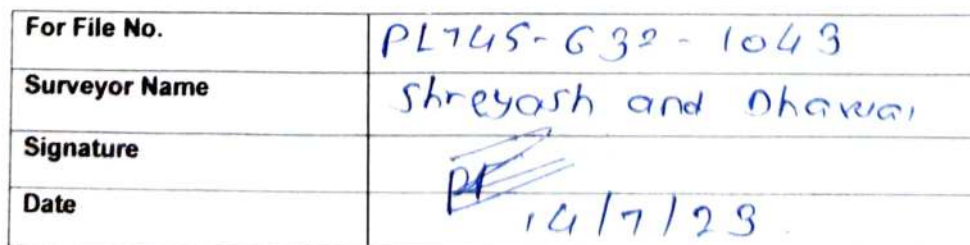 For File No. PL745-632-1043
Surveyor Name Shreyash and Dhawal
Signature
Date 14/7/23